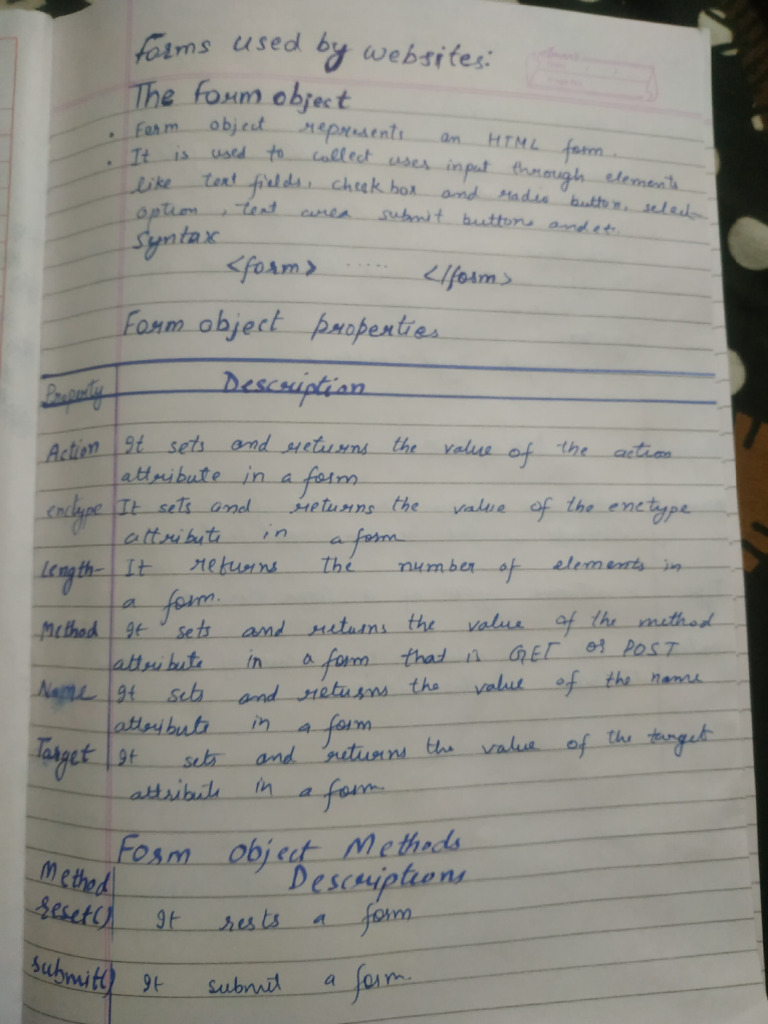 Forms used by websites:
The Form object
• Form object represents an HTML form.
• It is used to collect user input through elements
like text fields, check box and radio button, select
option, text area submit buttons and et.
Syntax
<form> ..... </form>
Form object properties
Property Description
Action It sets and returns the value of the action
attribute in a form
enctype It sets and returns the value of the enctype
attribute in a form
Length- It returns the number of elements in
a form.
Method It sets and returns the value of the method
attribute in a form that is GET or POST
Name It sets and returns the value of the name
attribute in a form
Target It sets and returns the value of the target
attribute in a form
Form Object Methods
Method Descriptions
reset() It rests a form
submit() It submit a form.